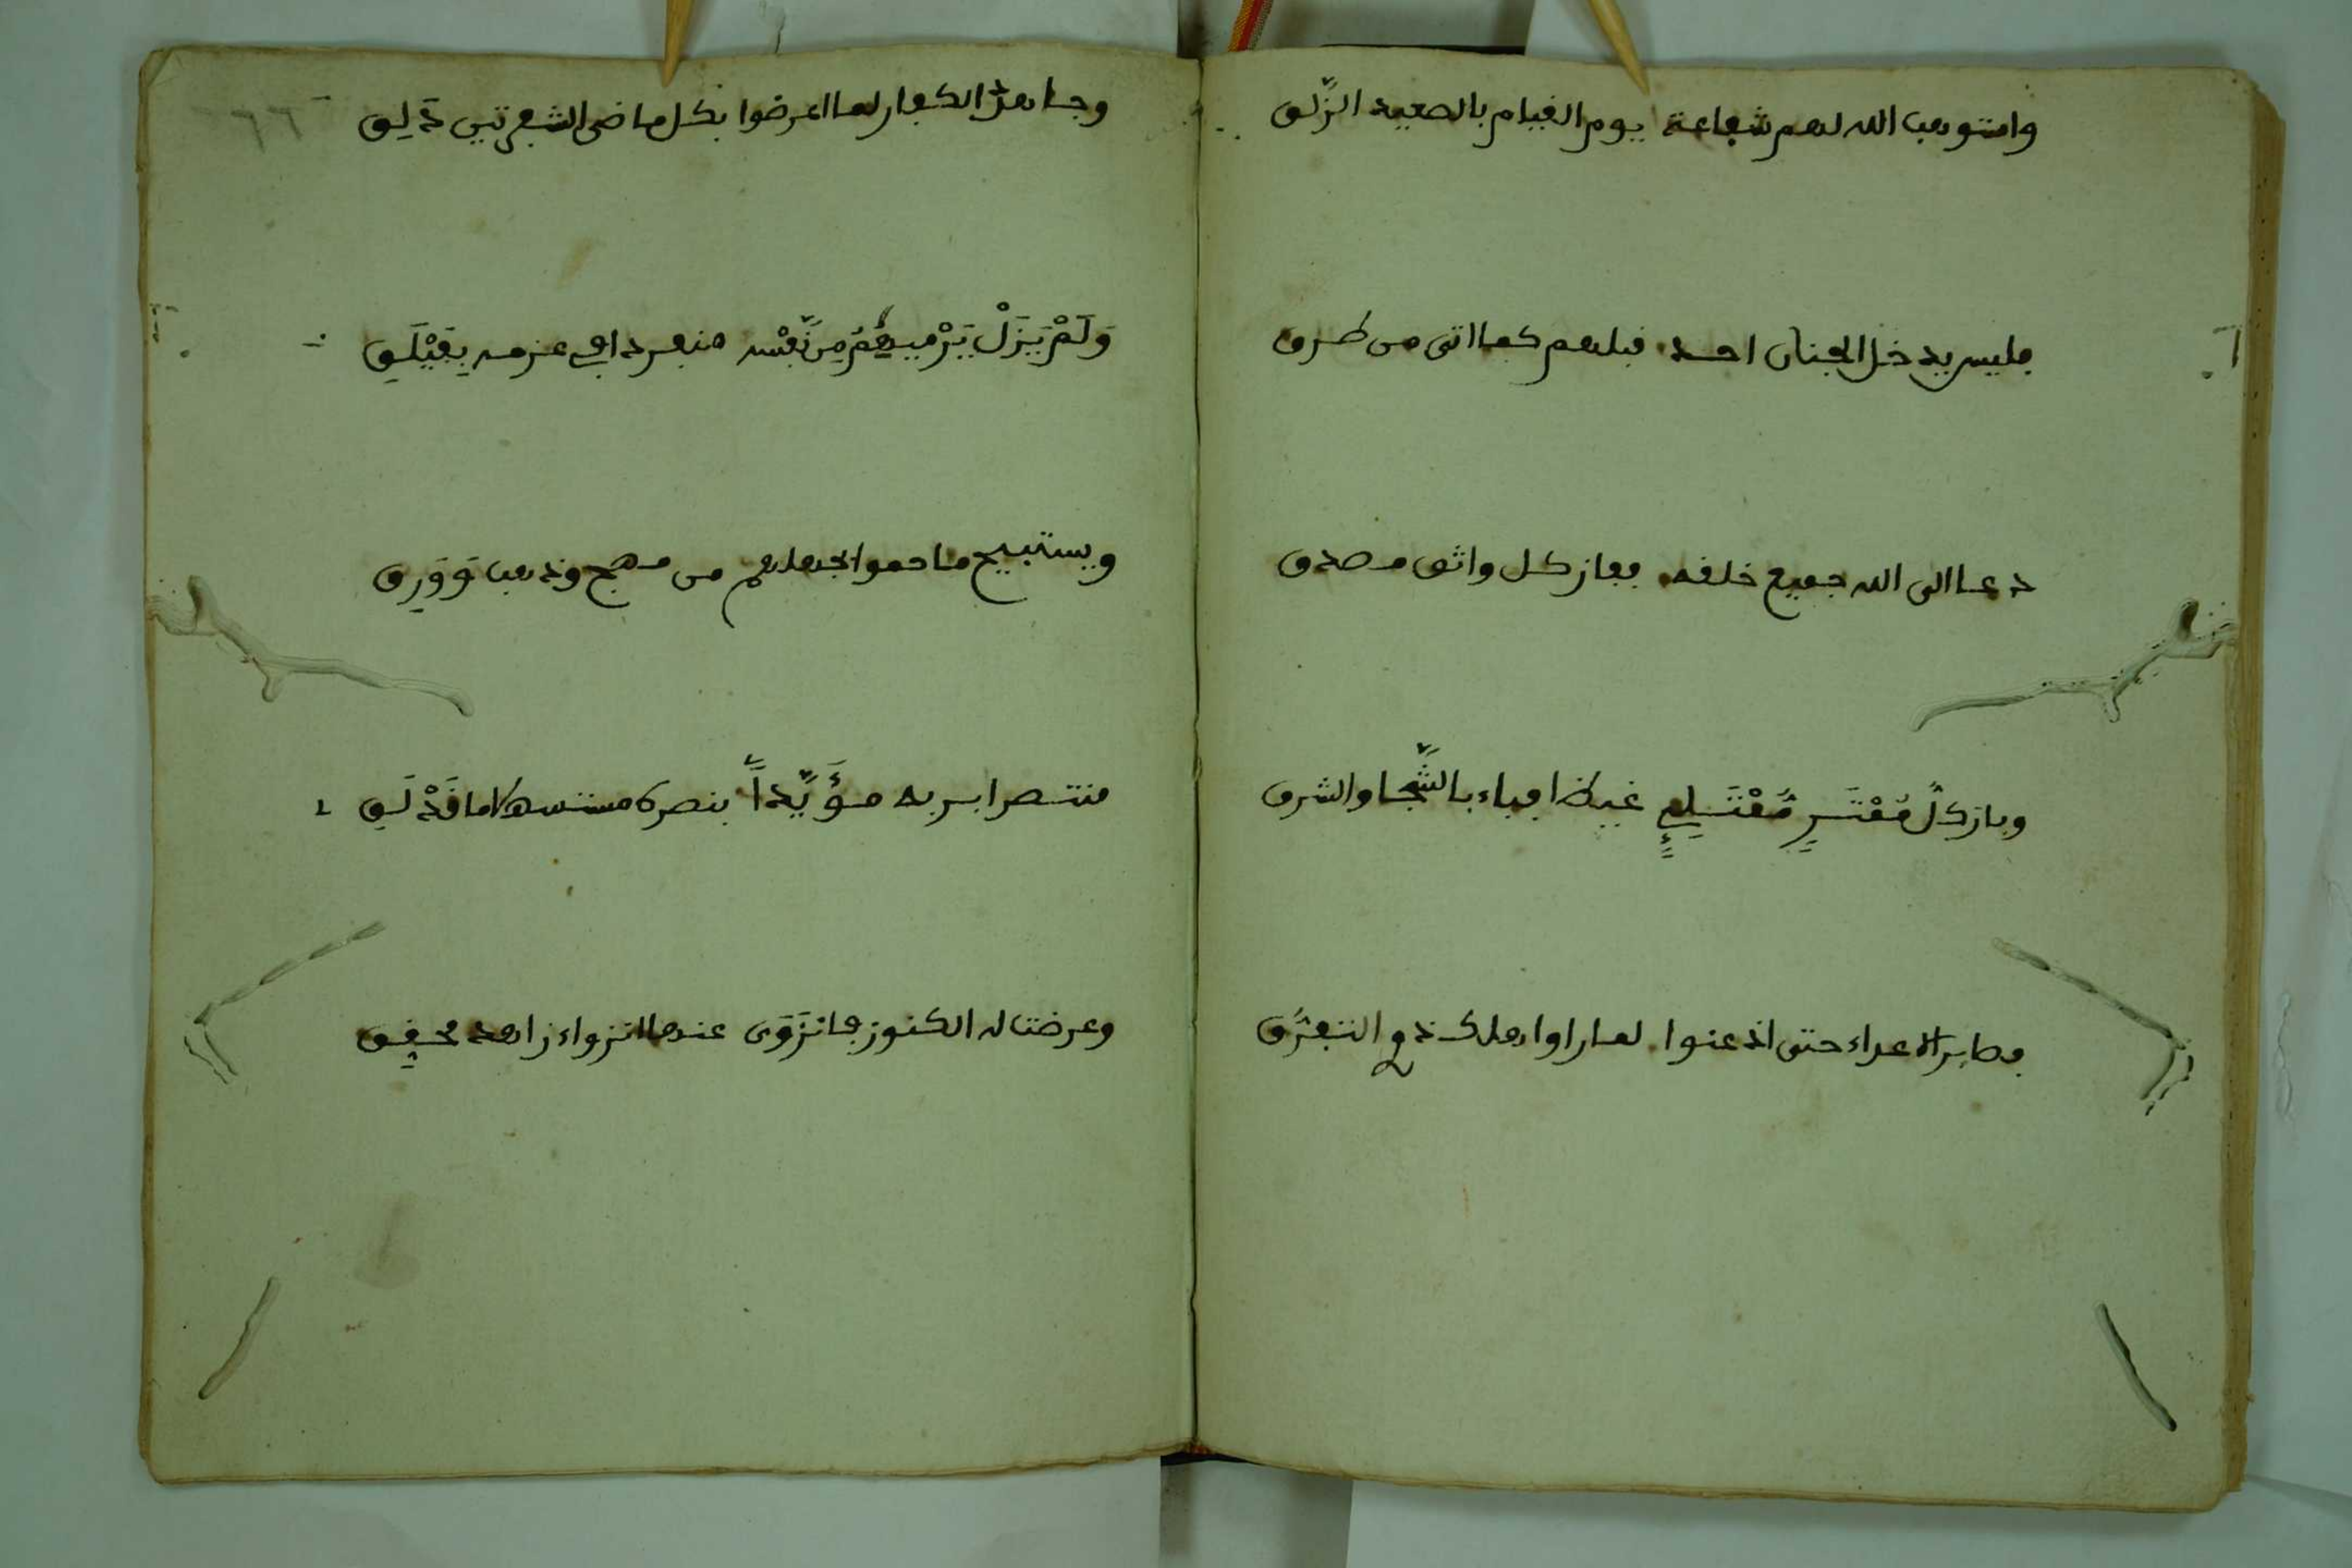 واستوهب الله لهم شفاعة يوم القيام بالصعيد الزَّلق
فليس يدخل الجنان احد قبلهم كما اتى من طرق
دعا الى الله جميع خلقه ففاز كل واثق مصدق
وباز كلُّ مُفْتَرٍ غيظا فباء بالشَّجا والشرق
وصابر الاعداء حتى اذعنوا لما راوا وهلك ذو التفرُّق
وجاهد الكفار لما اعرضوا بكل ماضى الشفرتين ذَلِق
وَلَمْ يَزَلْ يَرْمِيهُمُ مِن نَّفْسه منفردا في عزمه بِفَيْلَقِ
ويستبيح ما حموا بجهلهم من مهج وذهب وَوَرِق
منتصرا بربه مؤَيَّداً بنصره مستسهلا ما قَدْ لَقِ
وعرضت له الكنوز فانزَوَى عنها انزواء زاهد محقِق
٦٦